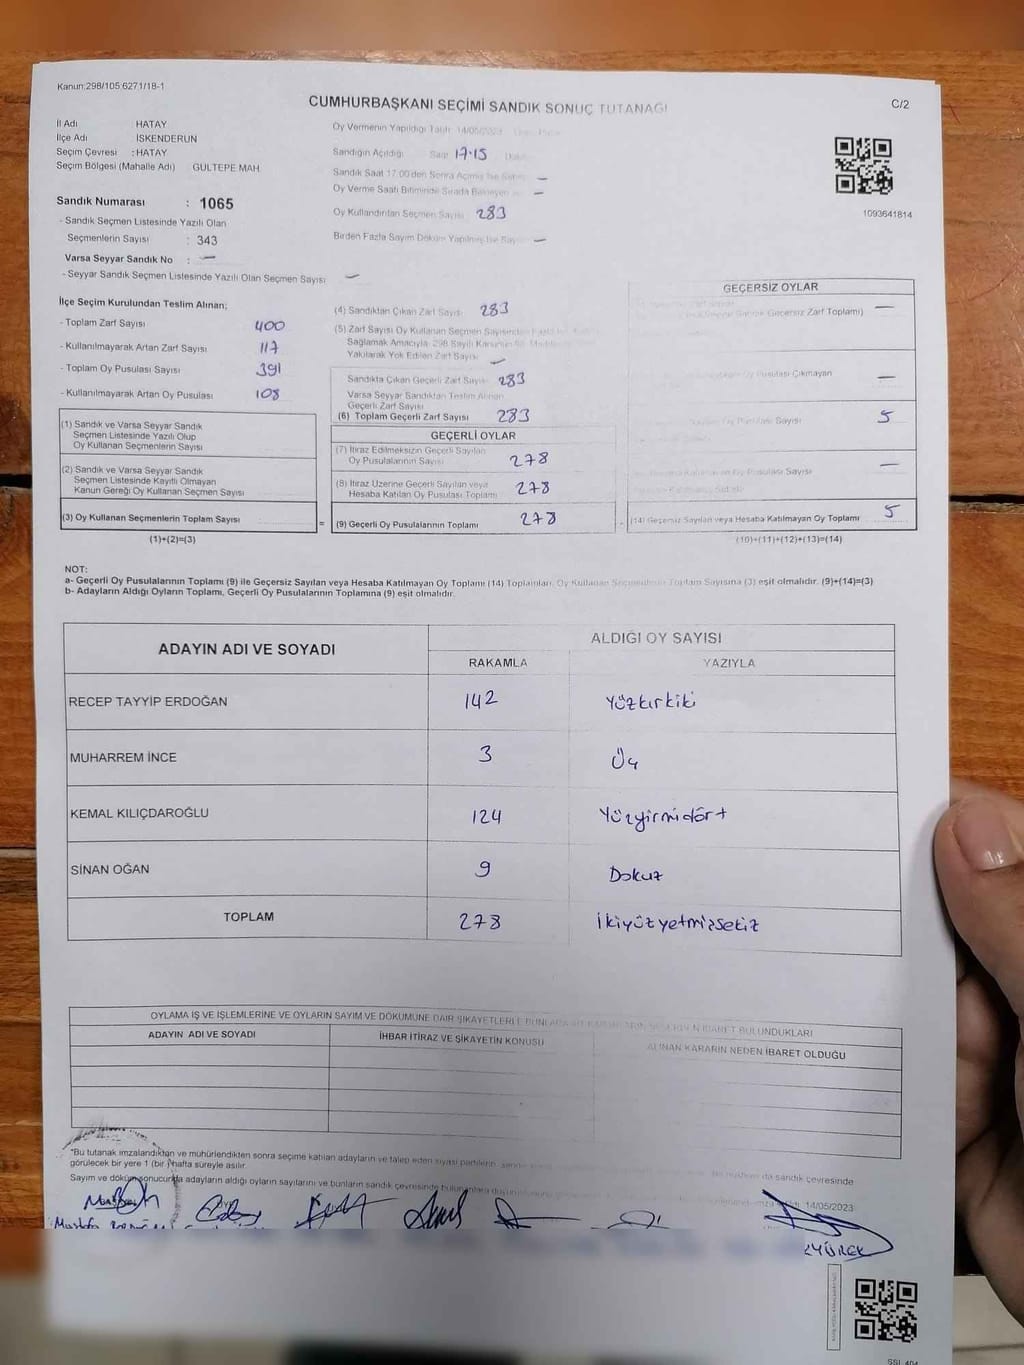 Kanun:298/105.6271/18-1
CUMHURBAŞKANI SEÇİMİ SANDIK SONUÇ TUTANAĞI
C/2
İl Adı HATAY
İlçe Adı İSKENDERUN
Seçim Çevresi : HATAY
Seçim Bölgesi (Mahalle Adı) GÜLTEPE MAH.
Sandık Numarası : 1065
- Sandık Seçmen Listesinde Yazılı Olan
Seçmenlerin Sayısı : 343
Varsa Seyyar Sandık No : —
- Seyyar Sandık Seçmen Listesinde Yazılı Olan Seçmen Sayısı —
Oy Vermenin Yapıldığı Tarih 14/05/2023
Sandığın Açıldığı Saat 17.15
Sandık Saat 17.00'den Sonra Açılmış İse —
Oy Verme Saati Bitiminde Sırada Bekleyen —
Oy Kullandırılan Seçmen Sayısı 283
Birden Fazla Sayım Döküm Yapılmış İse Sayısı —
1093641814
İlçe Seçim Kurulundan Teslim Alınan;
- Toplam Zarf Sayısı 400
- Kullanılmayarak Artan Zarf Sayısı 117
- Toplam Oy Pusulası Sayısı 391
- Kullanılmayarak Artan Oy Pusulası 108
(1) Sandık ve Varsa Seyyar Sandık
Seçmen Listesinde Yazılı Olup
Oy Kullanan Seçmenlerin Sayısı
(2) Sandık ve Varsa Seyyar Sandık
Seçmen Listesinde Kayıtlı Olmayan
Kanun Gereği Oy Kullanan Seçmen Sayısı
(3) Oy Kullanan Seçmenlerin Toplam Sayısı
(1)+(2)=(3)
=
(4) Sandıktan Çıkan Zarf Sayısı 283
(5) Zarf Sayısı Oy Kullanan Seçmen Sayısından
Sağlamak Amacıyla 298 Sayılı Kanunun
Yakılarak Yok Edilen Zarf Sayısı —
Sandıkta Çıkan Geçerli Zarf Sayısı 283
Varsa Seyyar Sandıktan Teslim Alınan
Geçerli Zarf Sayısı
(6) Toplam Geçerli Zarf Sayısı 283
GEÇERLİ OYLAR
(7) İtiraz Edilmeksizin Geçerli Sayılan
Oy Pusulalarının Sayısı 278
(8) İtiraz Üzerine Geçerli Sayılan veya
Hesaba Katılan Oy Pusulası Toplamı 278
(9) Geçerli Oy Pusulalarının Toplamı 278
GEÇERSİZ OYLAR
Geçersiz Zarf Toplamı) —
Oy Pusulası Çıkmayan —
Sayısı 5
Oy Pusulası Sayısı —
(14) Geçersiz Sayılan veya Hesaba Katılmayan Oy Toplamı 5
(10)+(11)+(12)+(13)=(14)
NOT:
a- Geçerli Oy Pusulalarının Toplamı (9) ile Geçersiz Sayılan veya Hesaba Katılmayan Oy Toplamı (14) Toplamları, Oy Kullanan Seçmenlerin Toplam Sayısına (3) eşit olmalıdır. (9)+(14)=(3)
b- Adayların Aldığı Oyların Toplamı, Geçerli Oy Pusulalarının Toplamına (9) eşit olmalıdır.
ADAYIN ADI VE SOYADI ALDIĞI OY SAYISI
RAKAMLA YAZIYLA
RECEP TAYYİP ERDOĞAN 142 Yüzkırkiki
MUHARREM İNCE 3 Üç
KEMAL KILIÇDAROĞLU 124 Yüzyirmidört
SİNAN OĞAN 9 Dokuz
TOPLAM 278 İkiyüzyetmişsekiz
OYLAMA İŞ VE İŞLEMLERİNE VE OYLARIN SAYIM VE DÖKÜMÜNE DAİR ŞİKAYETLERLE BUNLARA İBARET BULUNDUKLARI
ADAYIN ADI VE SOYADI İHBAR İTİRAZ VE ŞİKAYETİN KONUSU ALINAN KARARIN NEDEN İBARET OLDUĞU
*Bu tutanak imzalandıktan ve mühürlendikten sonra seçime katılan adayların ve talep eden siyasi partilerin da sandık çevresinde
görülecek bir yere 1 (bir) hafta süreyle asılır.
Sayım ve döküm sonucunda adayların aldığı oyların sayılarını ve bunların sandık çevresinde
14/05/2023
Mustafa
SSI 404